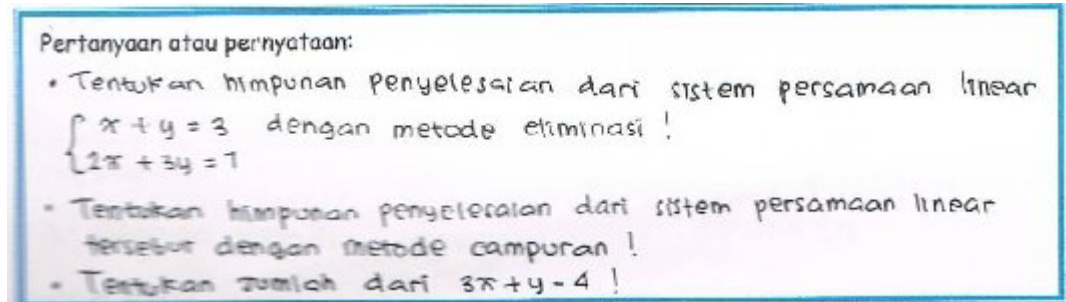 Pertanyaan atau pernyataan:
• Tentukan himpunan penyelesaian dari sistem persamaan linear
{ x + y = 3 dengan metode eliminasi !
{ 2x + 3y = 7
• Tentukan himpunan penyelesaian dari sistem persamaan linear
tersebut dengan metode campuran !
• Tentukan Jumlah dari 3x + y - 4 !